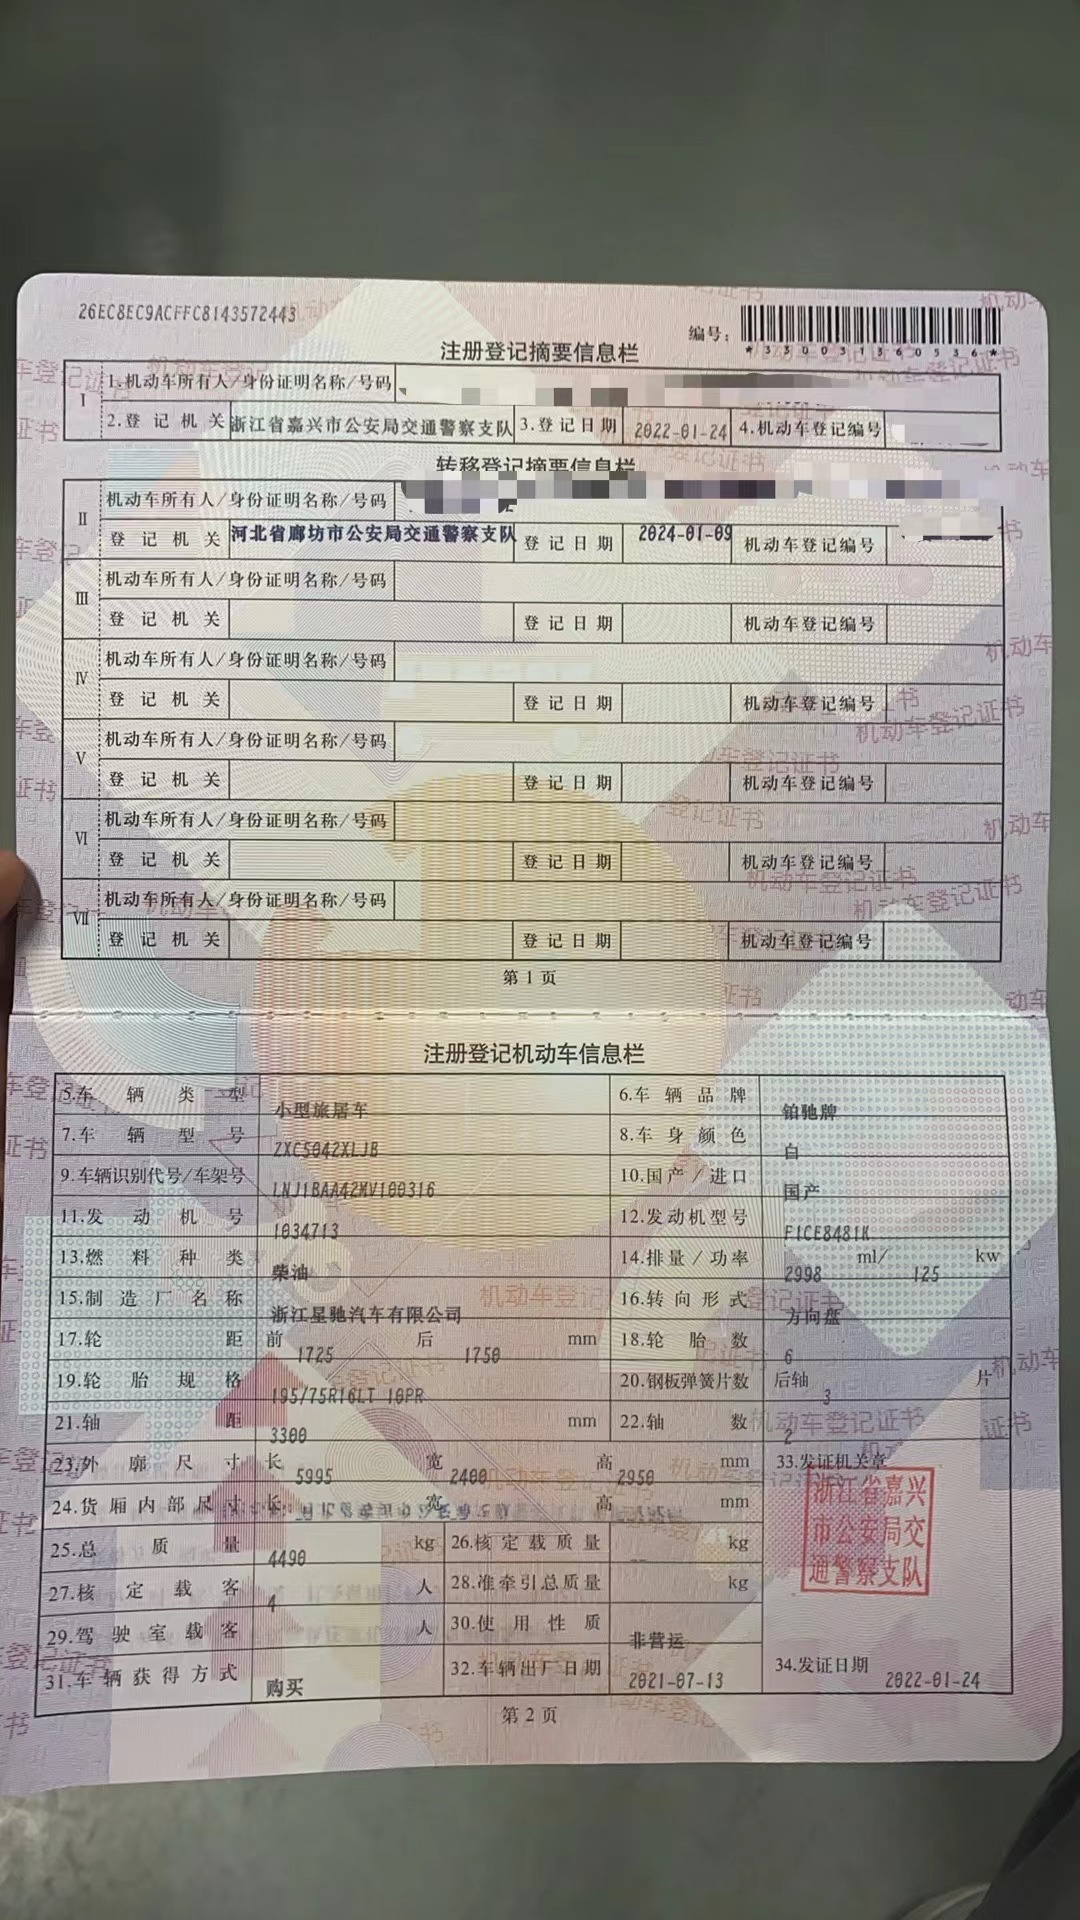 26EC8EC9ACFFC8143572443
编号:
*330031360536*
注册登记摘要信息栏
I 1.机动车所有人/身份证明名称/号码
2.登记机关 浙江省嘉兴市公安局交通警察支队 3.登记日期 2022-01-24 4.机动车登记编号
转移登记摘要信息栏
II 机动车所有人/身份证明名称/号码
登记机关 河北省廊坊市公安局交通警察支队 登记日期 2024-01-09 机动车登记编号
III 机动车所有人/身份证明名称/号码
登记机关 登记日期 机动车登记编号
IV 机动车所有人/身份证明名称/号码
登记机关 登记日期 机动车登记编号
V 机动车所有人/身份证明名称/号码
登记机关 登记日期 机动车登记编号
VI 机动车所有人/身份证明名称/号码
登记机关 登记日期 机动车登记编号
VII 机动车所有人/身份证明名称/号码
登记机关 登记日期 机动车登记编号
第1页
注册登记机动车信息栏
5.车辆类型 小型旅居车 6.车辆品牌 铂驰牌
7.车辆型号 ZXC5042XLJB 8.车身颜色 白
9.车辆识别代号/车架号 LNJ1BAA42MV100316 10.国产/进口 国产
11.发动机号 1034713 12.发动机型号 F1CE8481K
13.燃料种类 柴油 14.排量/功率 2998 ml/ 125 kw
15.制造厂名称 浙江星驰汽车有限公司 16.转向形式 方向盘
17.轮距 前 1725 后 1750 mm 18.轮胎数 6
19.轮胎规格 195/75R16LT 10PR 20.钢板弹簧片数 后轴 3 片
21.轴距 3300 mm 22.轴数 2
23.外廓尺寸 长 5995 宽 2400 高 2950 mm 33.发证机关章
24.货厢内部尺寸 长 宽 高 mm
浙江省嘉兴
市公安局交
通警察支队
25.总质量 4490 kg 26.核定载质量 -- kg
27.核定载客 4 人 28.准牵引总质量 kg
29.驾驶室载客 人 30.使用性质 非营运
31.车辆获得方式 购买 32.车辆出厂日期 2021-07-13 34.发证日期 2022-01-24
第2页